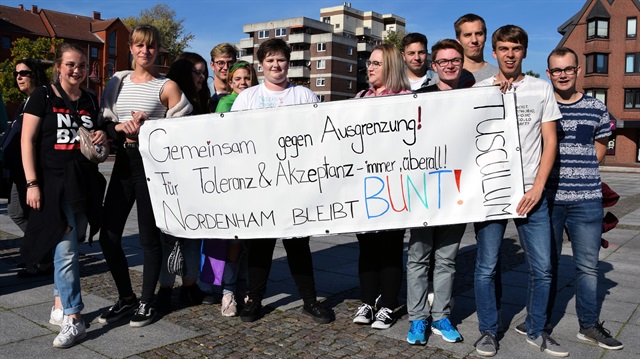 Gemeinsam gegen Ausgrenzung!
Für Toleranz & Akzeptanz - immer, überall!
NORDENHAM BLEIBT BUNT!
TUSCULUM